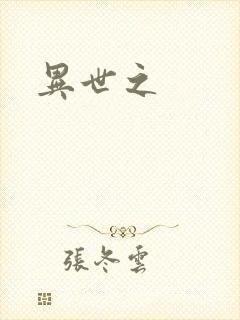 異世之
張冬雲